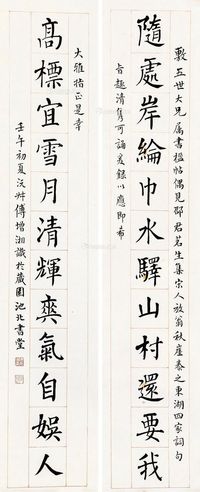 敷五世大兄属書楹帖偶見邵君茗生集宋人放翁秋崖泰之東湖四家詞句
隨處岸綸巾水驛山村還要我
旨趣清隽可誦爰録以應即希
大雅指正是幸
高標宜雪月清輝爽氣自娛人
壬午初夏江安傅增湘識於藏園池北書堂